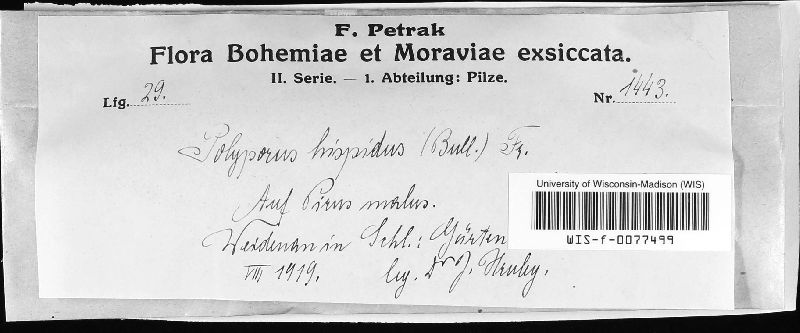 F. Petrak
Flora Bohemiae et Moraviae exsiccata.
II. Serie. — 1. Abteilung: Pilze.
Lfg. 29.
Nr. 1443.
Polyporus hispidus (Bull.) Fr.
Auf Pirus malus.
Weidenau in Schl.: Gärten
VIII 1919. leg. Dr J. Hruby.
University of Wisconsin-Madison (WIS)
WIS-f-0077499